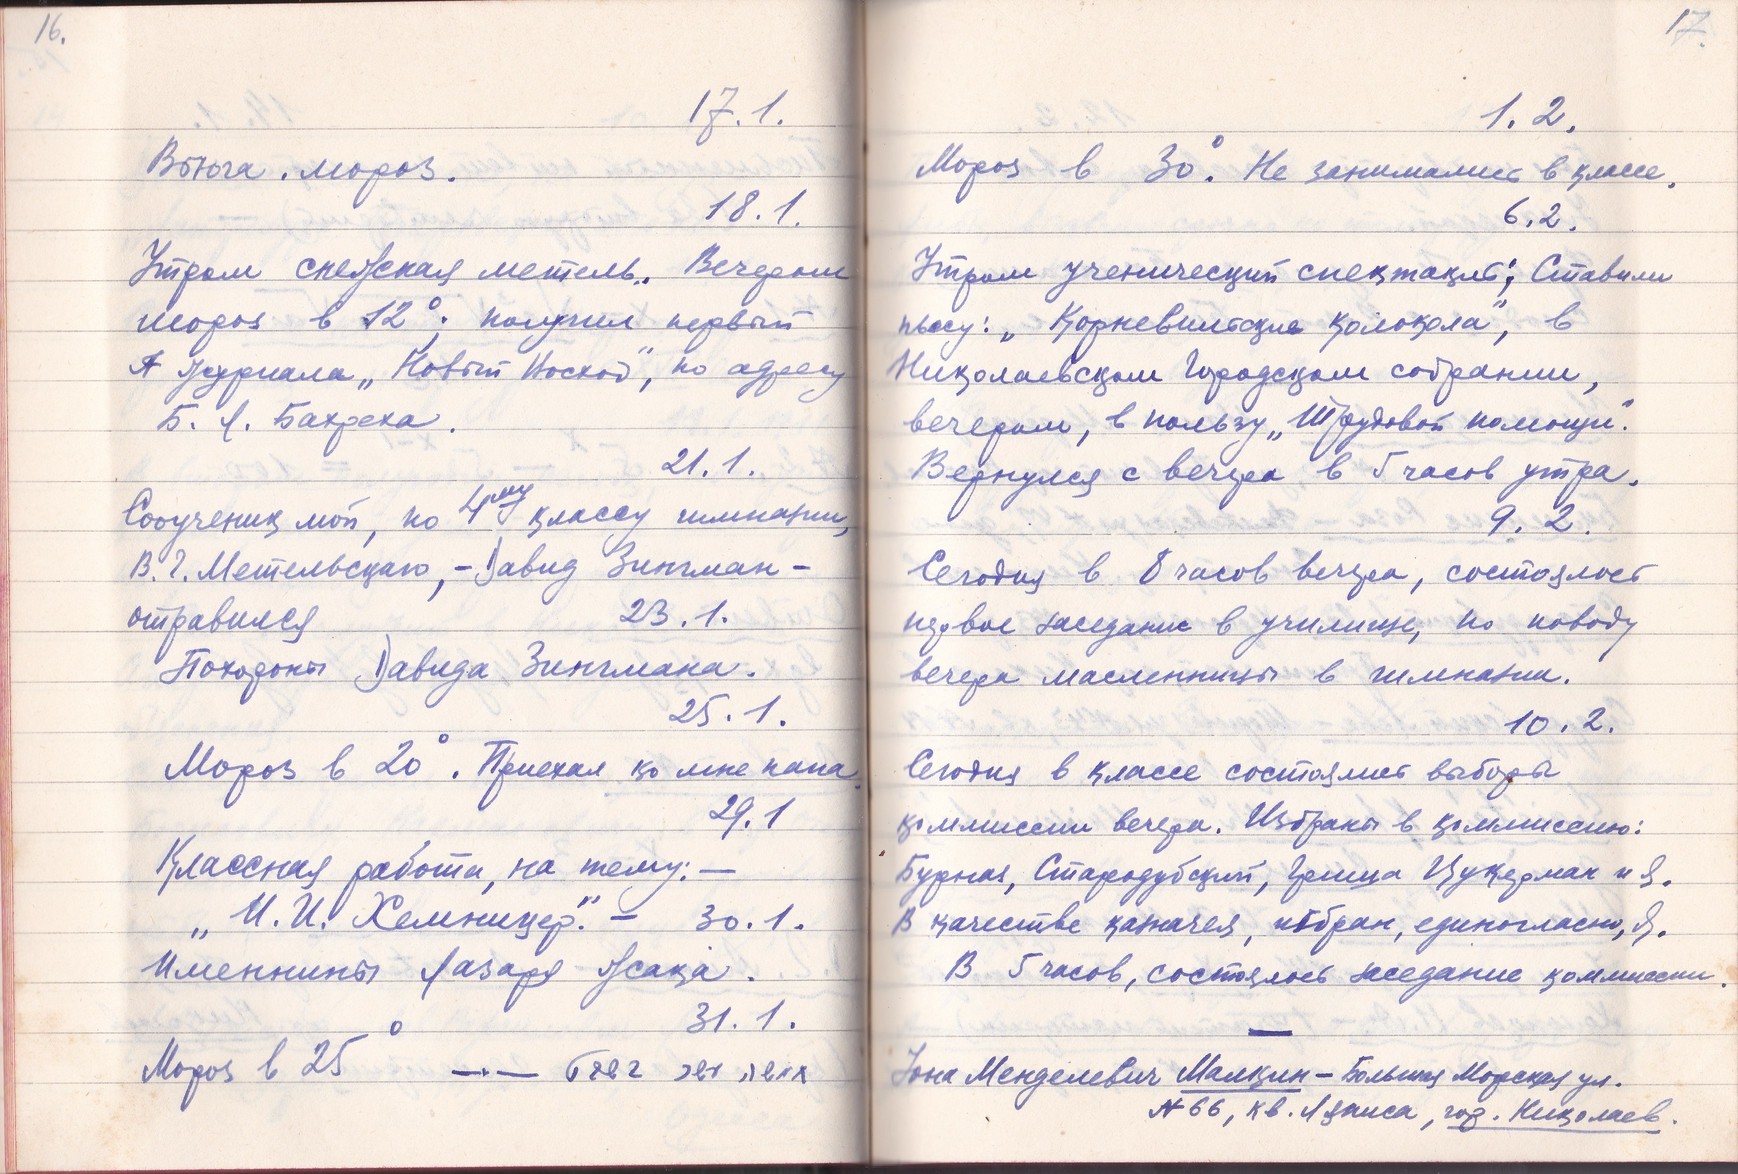 16.
17.1.
Вьюга. мороз.
18.1.
Утром снежная метель. Вечером
мороз в 12°. получил первый
№ журнала „Новый Восход", по адресу
Б. Л. Бахреха.
21.1.
Соученик мой, по 4му классу гимназии,
В. Г. Метельскаго, - Давид Зингман -
отравился
23.1.
Похороны Давида Зингмана.
25.1.
Мороз в 20°. Приехал ко мне папа
29.1
Классная работа, на тему: —
„И. И. Хемницер". -
30.1.
Именнины Лазаря Исака.
31.1.
Мороз в 25°
17.
1.2.
Мороз в 30°. Не занимались в классе.
6.2.
Утром ученический спектакль; Ставили
пьесу: „Корневильские колокола", в
Николаевском Городском собрании,
вечером, в пользу „Трудовой помощи".
Вернулся с вечера в 5 часов утра.
9.2.
Сегодня в 8 часов вечера, состоялось
первое заседание в училище, по поводу
вечера масленницы в гимназии.
10.2.
Сегодня в классе состоялись выборы
коммиссии вечера. Избраны в коммиссию:
Бурная, Стародубский, Гриша Цукерман и я.
В качестве казначея, избран, единогласно, я.
В 5 часов, состоялось заседание коммиссии.
Иона Менделевич Малкин - Большая Морская ул.
№ 66, кв. Ляписа, гор. Николаев.